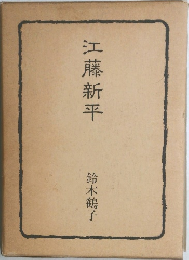 江藤新平
鈴木鶴子